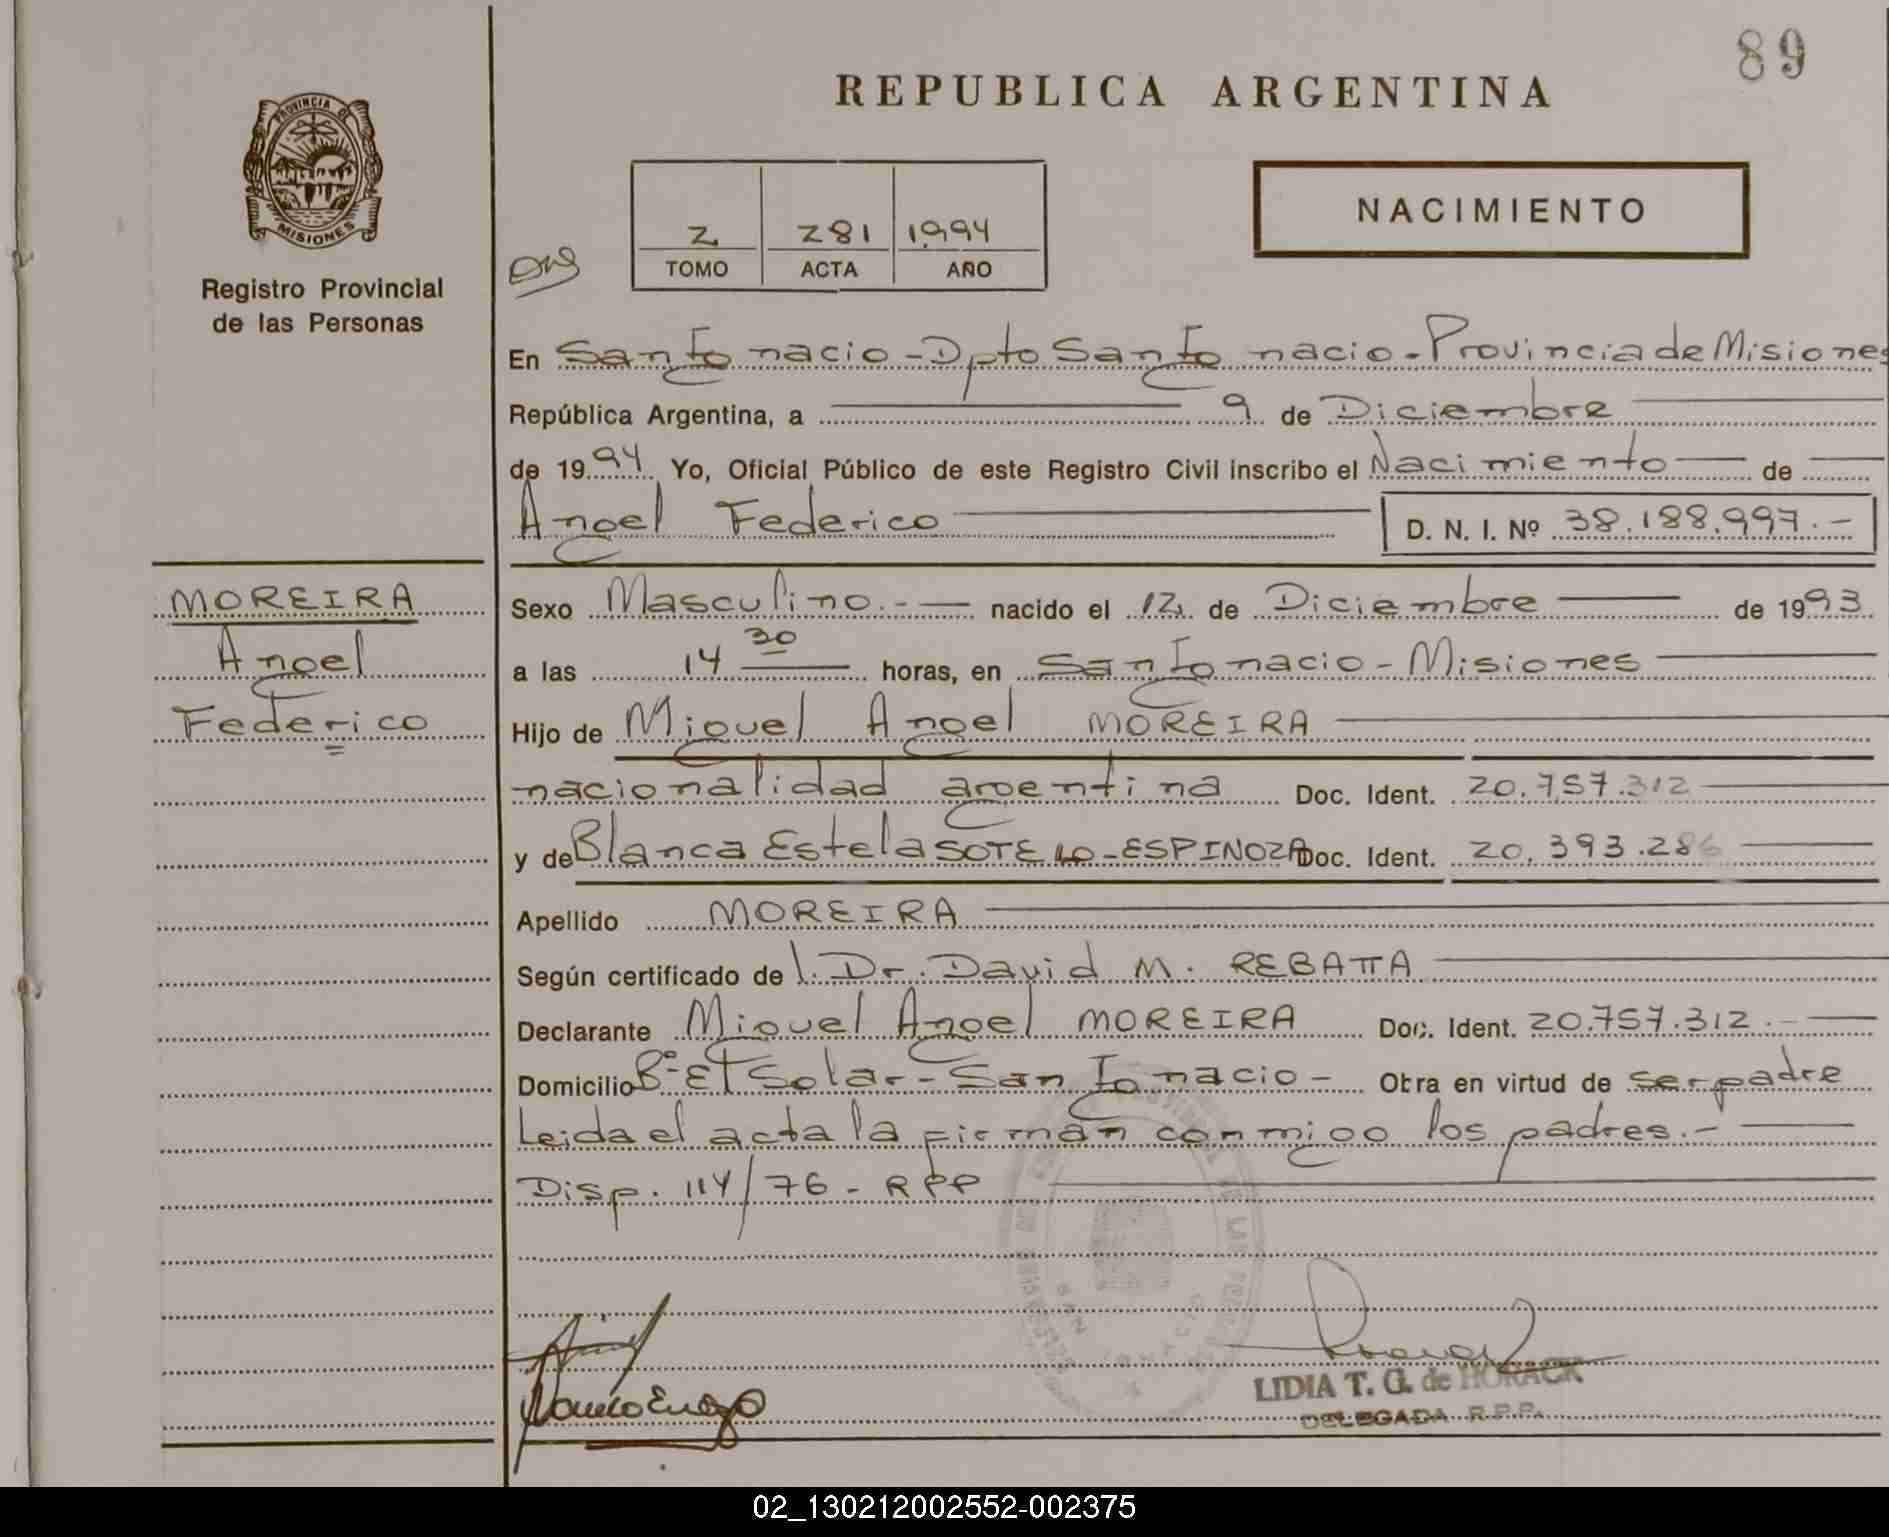 89
REPUBLICA ARGENTINA
PROVINCIA DE
MISIONES
Registro Provincial
de las Personas
2 281 1994
TOMO ACTA AÑO
NACIMIENTO
En San Ignacio - Dpto San Ignacio - Provincia de Misiones
República Argentina, a 9 de Diciembre
de 1994 Yo, Oficial Público de este Registro Civil inscribo el Nacimiento de
Angel Federico D. N. I. Nº 38.188.997.-
MOREIRA
Angel
Federico
Sexo Masculino.- nacido el 12 de Diciembre de 1993
a las 14 30 horas, en San Ignacio - Misiones
Hijo de Miguel Angel MOREIRA
nacionalidad argentina Doc. Ident. 20.757.312
y de Blanca Estela SOTELO-ESPINOZA Doc. Ident. 20.393.286
Apellido MOREIRA
Según certificado de l. Dr. David M. REBATTA
Declarante Miguel Angel MOREIRA Doc. Ident. 20.757.312.-
Domicilio Bº El Solar - San Ignacio - Obra en virtud de ser padre
Leida el acta la firman conmigo los padres.-
Disp. 114/76 - RPP
LIDIA T. G. de HORACK
DELEGADA R.P.P.
02_130212002552-002375